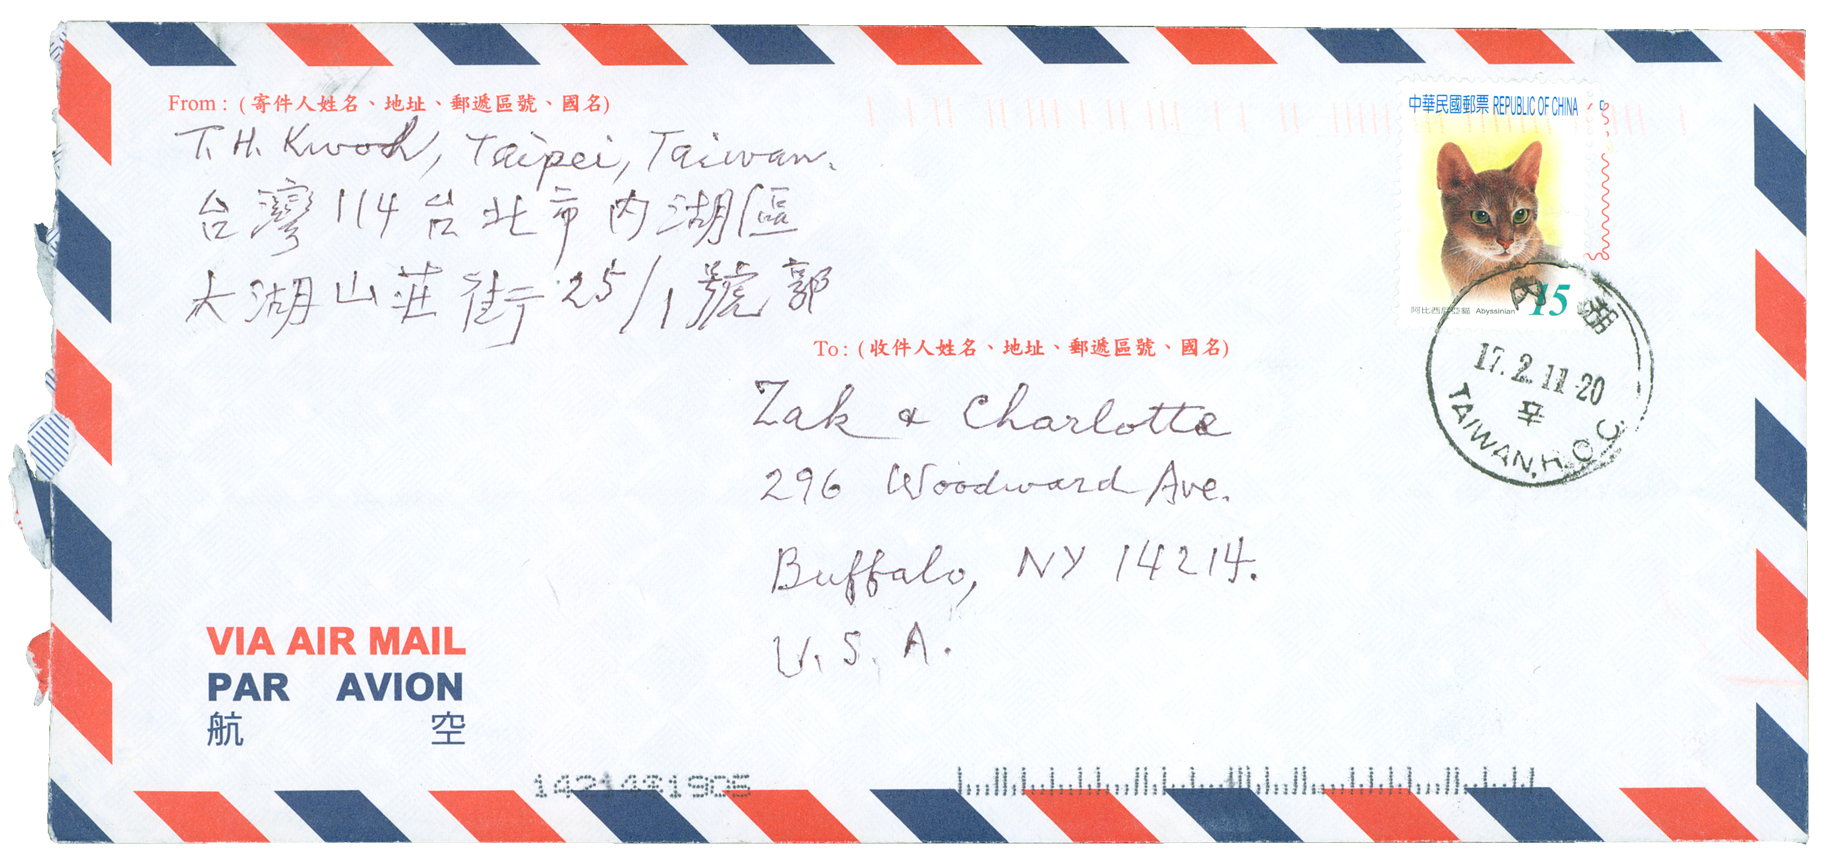 From : (寄件人姓名、地址、郵遞區號、國名)
T. H. Kwoh, Taipei, Taiwan.
台灣 114 台北市內湖區
大湖山莊街 25/1 號 郭
中華民國郵票 REPUBLIC OF CHINA
阿比西尼亞貓 Abyssinian 15
內湖
17.2.11-20
辛
TAIWAN, R.O.C.
To : (收件人姓名、地址、郵遞區號、國名)
Zak & Charlotte
296 Woodward Ave.
Buffalo, NY 14214.
U. S. A.
VIA AIR MAIL
PAR AVION
航 空
1421481905